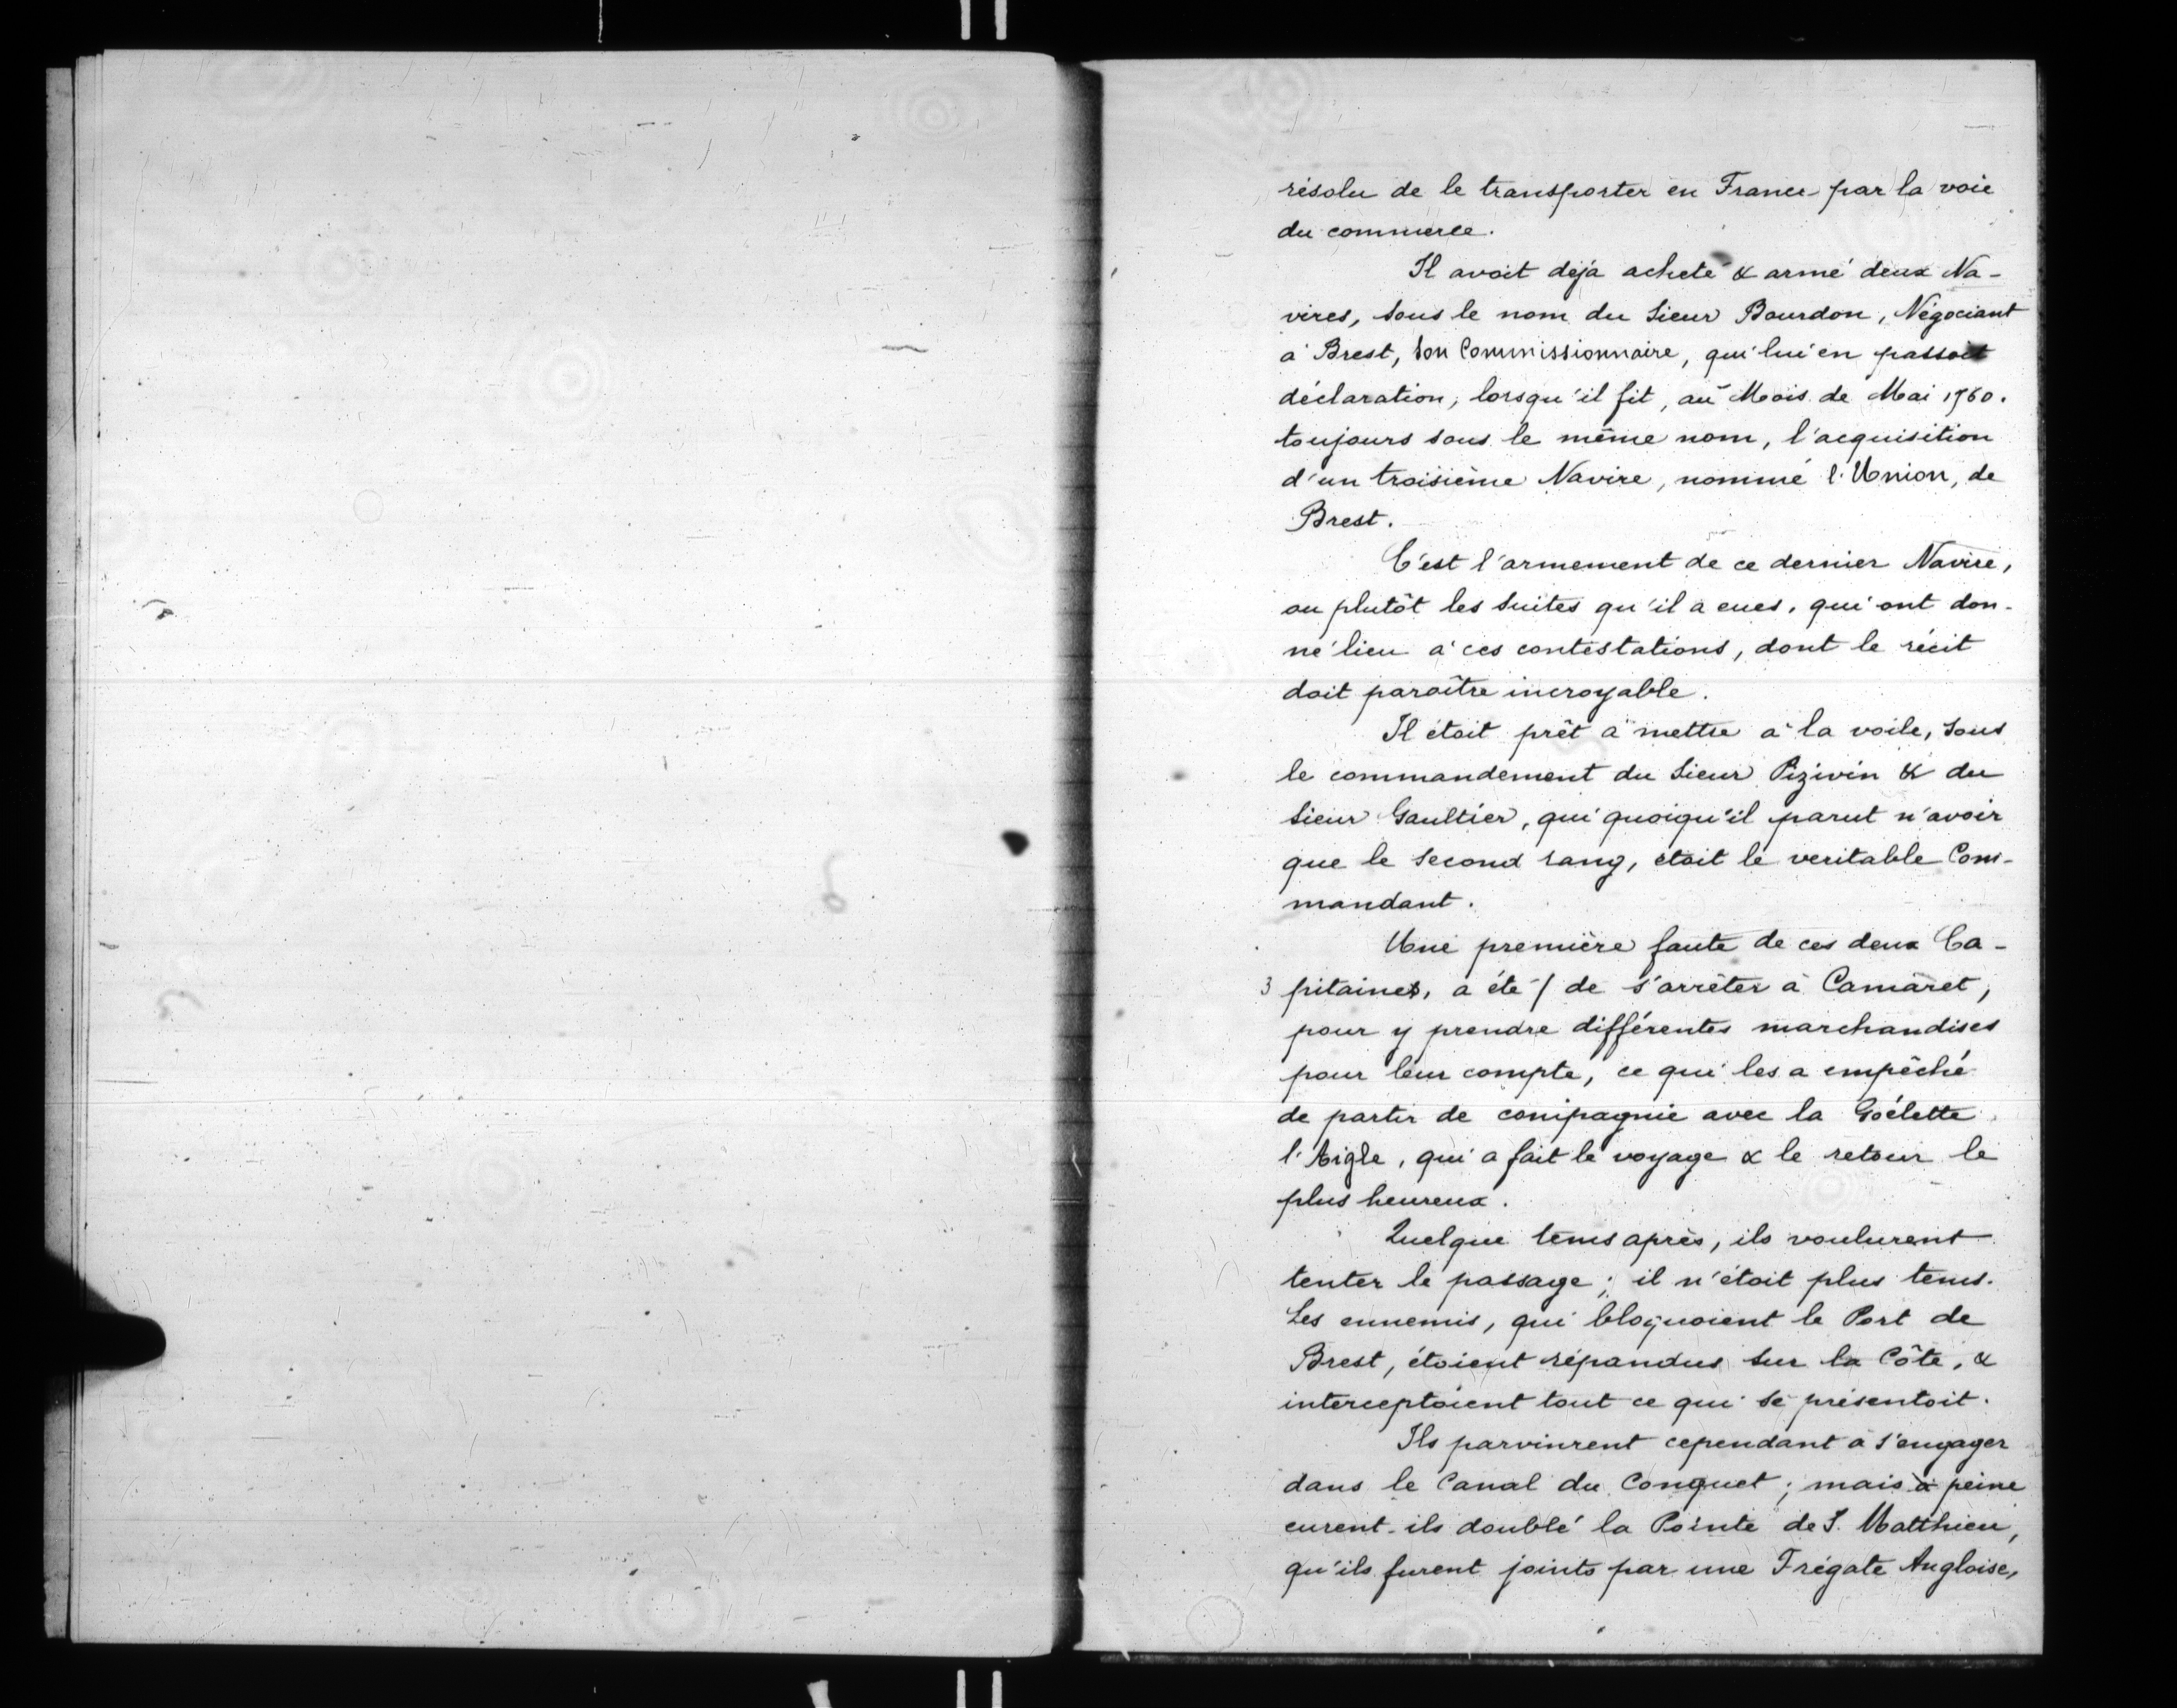 résolu de le transporter en France par la voie
du commerce.
Il avoit déja acheté & armé deux Na-
vires, sous le nom du Sieur Bourdon, Négociant
à Brest, son Commissionnaire, qui lui en passoit
déclaration, lorsqu'il fit, au Mois de Mai 1760.
toujours sous le même nom, l'acquisition
d'un troisième Navire, nommé l'Union, de
Brest.
C'est l'armement de ce dernier Navire,
ou plutôt les suites qu'il a eues, qui ont don-
né lieu à ces contestations, dont le récit
doit paraître incroyable.
Il étoit prêt à mettre à la voile, sous
le commandement du Sieur Pizivin & du
Sieur Gaultier, qui quoiqu'il parut n'avoir
que le second rang, étoit le veritable Com-
mandant.
Une première faute de ces deux Ca-
3 pitaines, a été / de s'arrêter à Camaret,
pour y prendre différentes marchandises
pour leur compte, ce qui les a empêché
de partir de compagnie avec la Goélette
l'Aigle, qui a fait le voyage & le retour le
plus heureux.
Quelque tems après, ils voulurent
tenter le passage; il n'étoit plus tems.
Les ennemis, qui bloquoient le Port de
Brest, étoient répandus sur la Côte, &
interceptoient tout ce qui se présentoit.
Ils parvinrent cependant à s'engager
dans le Canal du Conquet; mais à peine
eurent-ils doublé la Pointe de S. Matthieu,
qu'ils furent joints par une Frégate Angloise,